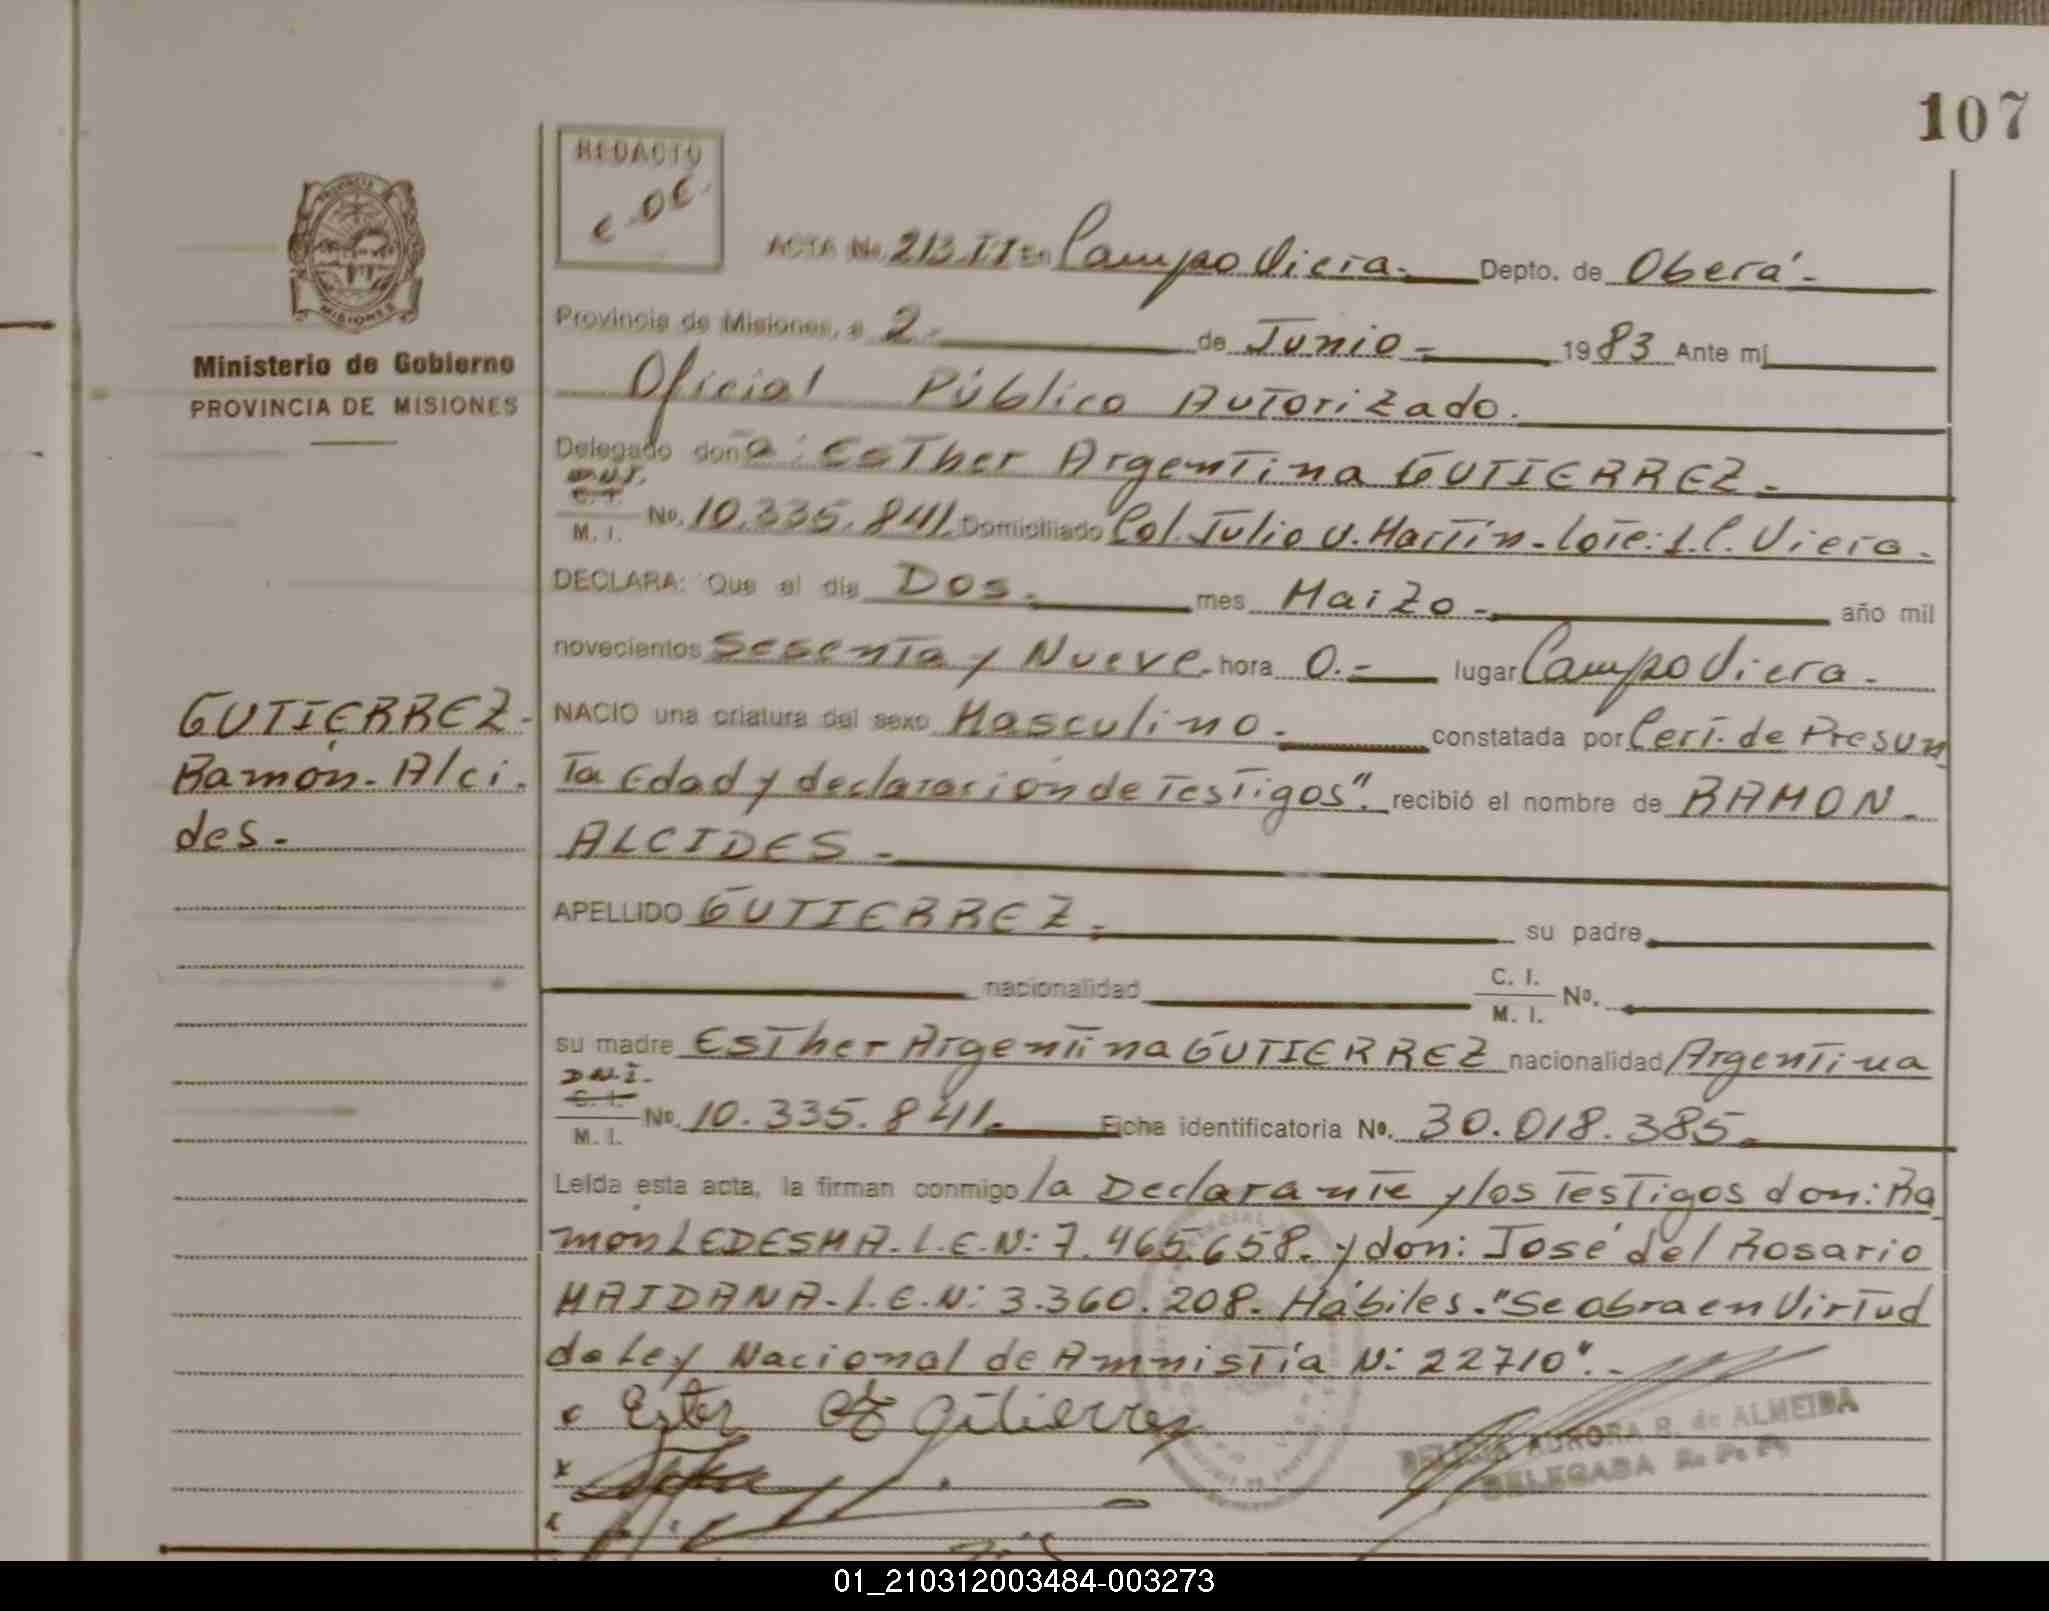 107
REDACTO
PROVINCIA
MISIONES
Ministerio de Gobierno
PROVINCIA DE MISIONES
ACTA No. 213 II En Campo Viera.- Depto. de Oberá.-
Provincia de Misiones, a 2.- de Junio.- 1983 Ante mí
Oficial Público Autorizado.
Delegado doña: Esther Argentina GUTIERREZ.-
D.N.I.
C. I.
M. I. No. 10.335.841. Domiciliado Col. Julio U. Martín.- Lote: 1. C. Viera.
DECLARA: Que el día Dos.- mes Marzo.- año mil
novecientos Sesenta y Nueve. hora 0.- lugar Campo Viera.-
GUTIERREZ.-
Ramón.- Alci.
des.-
NACIO una criatura del sexo Masculino.- constatada por Cert. de Presun
ta Edad y declaración de Testigos". recibió el nombre de RAMON.
ALCIDES.-
APELLIDO GUTIERREZ.- su padre
nacionalidad C. I.
M. I. No.
su madre Esther Argentina GUTIERREZ nacionalidad Argentina
D.N.I.
C. I.
M. I. No. 10.335.841.- Ficha identificatoria No. 30.018.385.
Leída esta acta, la firman conmigo la Declarante y los Testigos don: Ra
món LEDESMA. L.E.N: 7.465.658. y don: José del Rosario
MAIDANA.- L.E.N: 3.360.208. Hábiles. "Se obra en Virtud
de Ley Nacional de Amnistía N: 22710".-
Ester Gutierrez
AURORA R. de ALMEIDA
DELEGADA
01_210312003484-003273